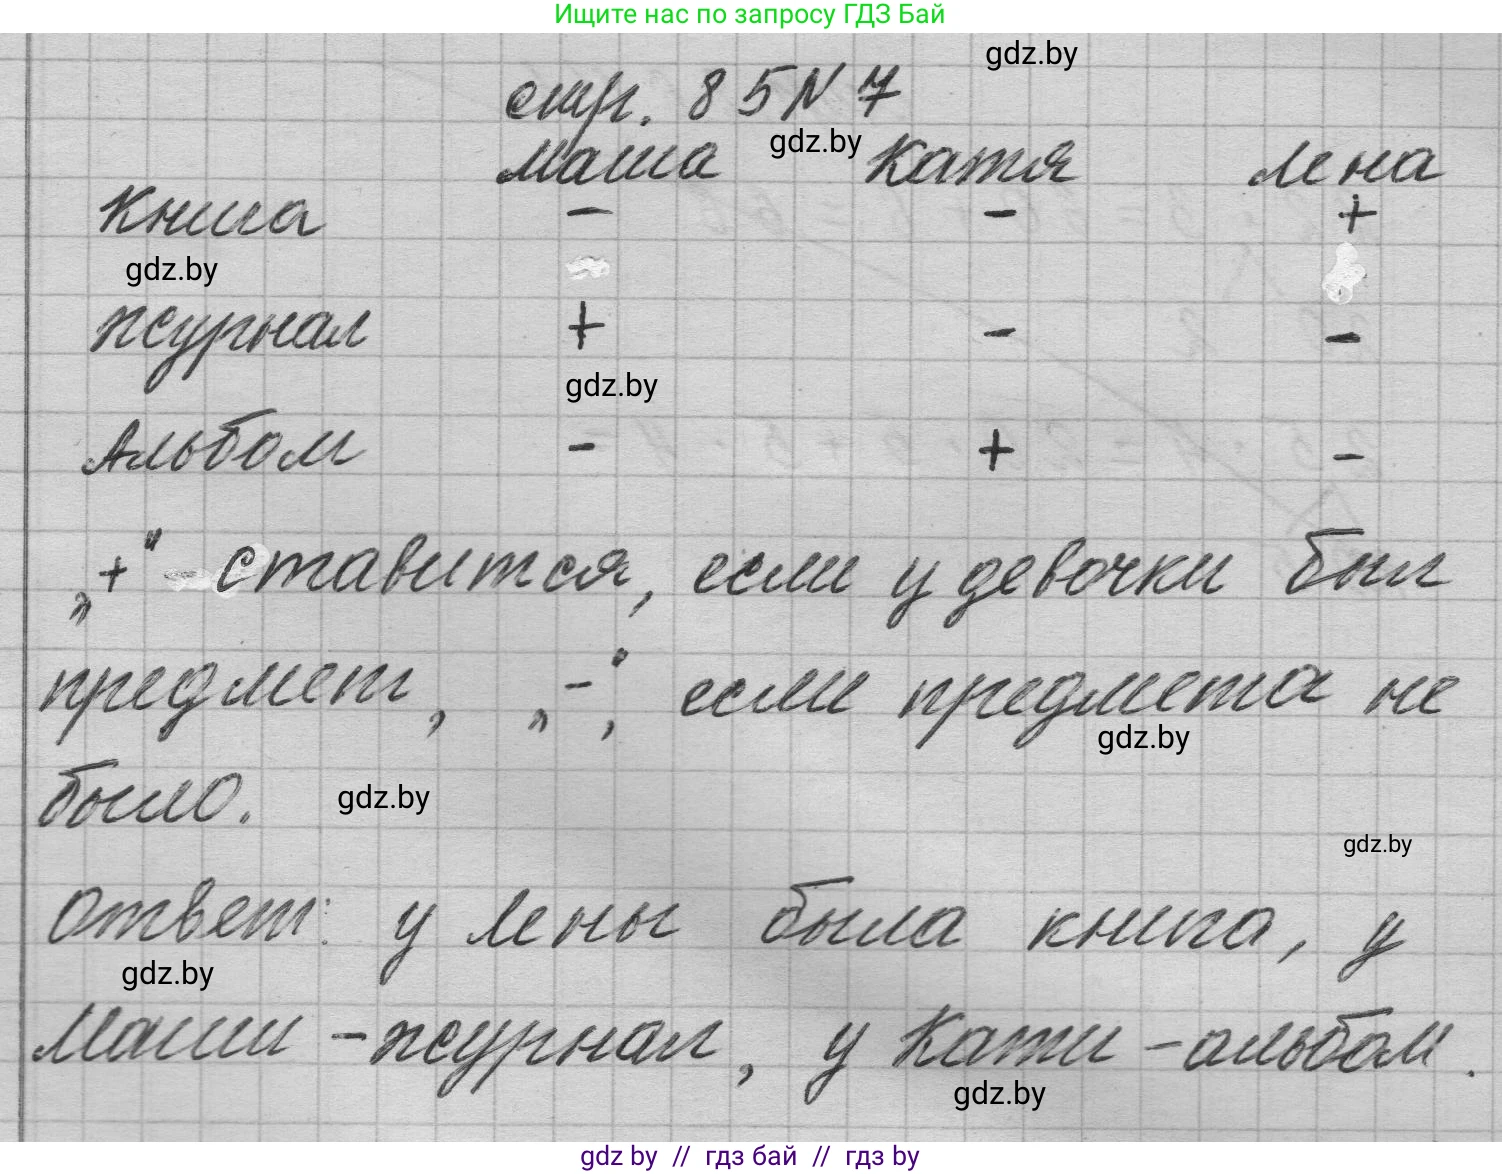 Ищите нас по запросу ГДЗ Бай
gdz.by
стр. 85 N 7
gdz.by
Маша Катя Лена
Книга - - +
gdz.by
журнал + - -
gdz.by
Альбом - + -
„+“ - ставится, если у девочки был
предмет, „-“, если предмета не
gdz.by
было.
gdz.by
gdz.by
Ответ: у Лены была книга, у
gdz.by
Маши - журнал, у Кати - альбом.
gdz.by
gdz.by // гдз бай // гдз by